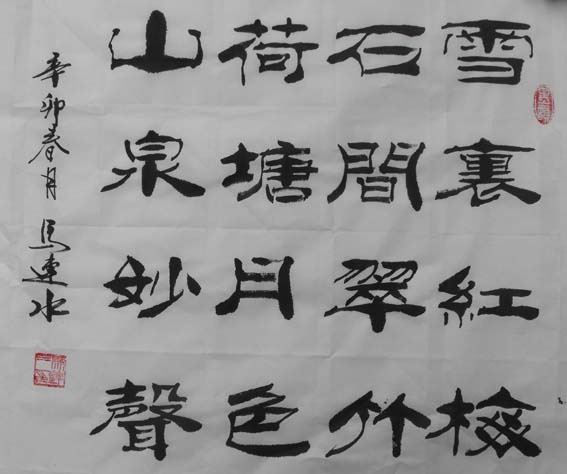 雪裏紅梅
石間翠竹
荷塘月色
山泉妙聲
辛卯春月馬連水